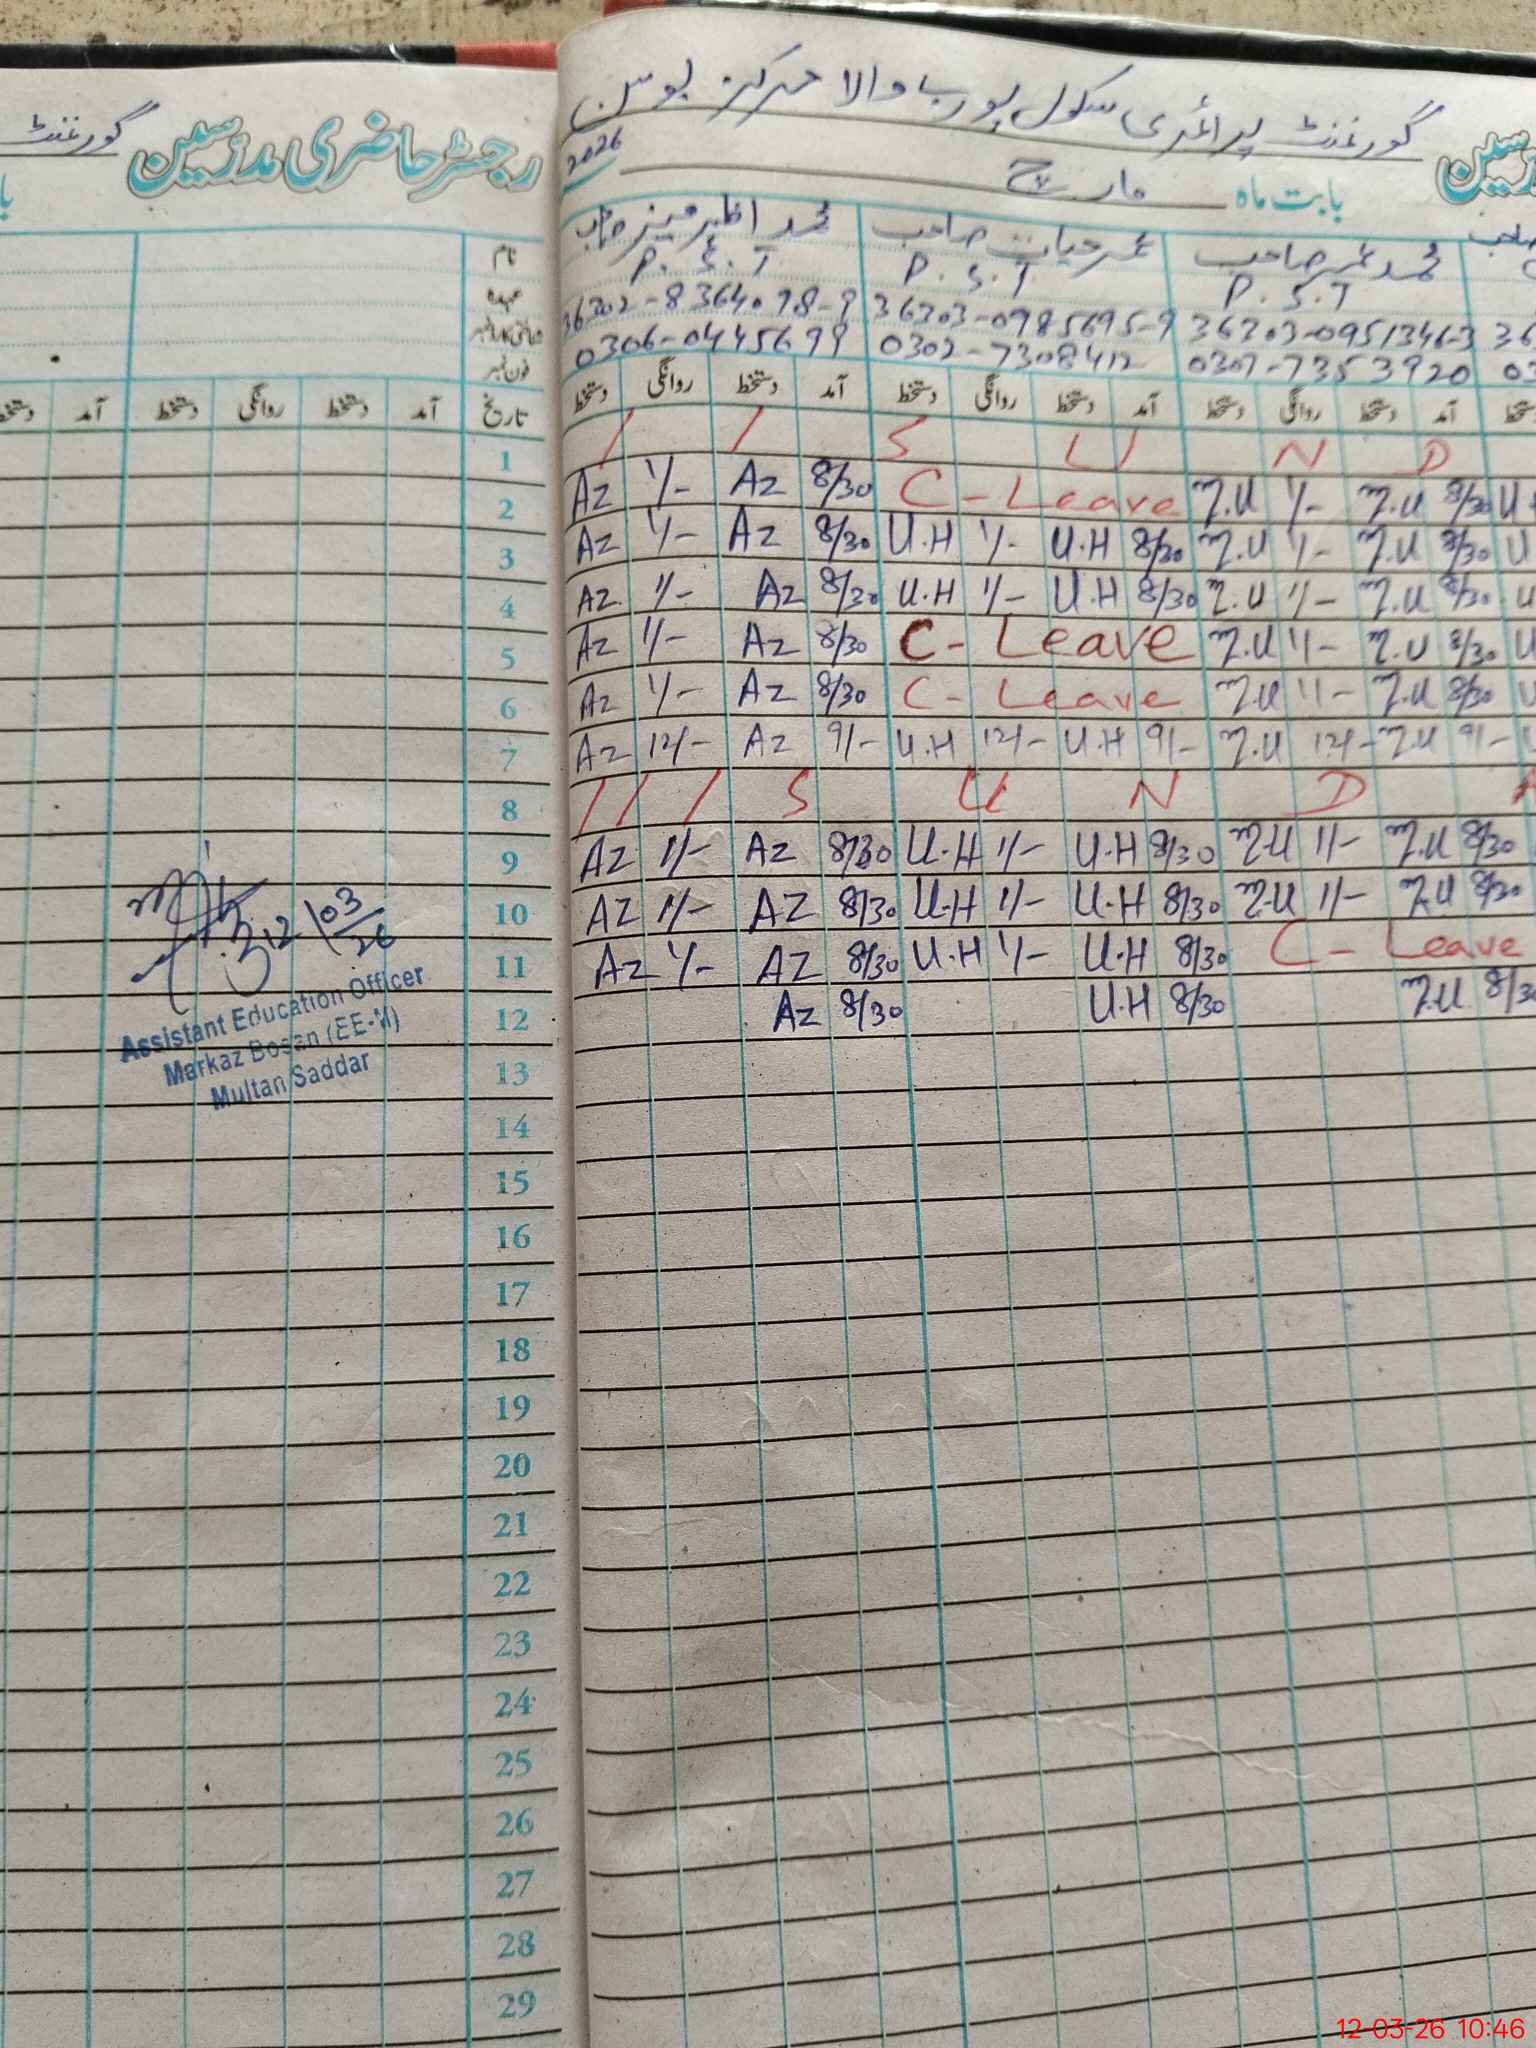 رجسٹر حاضری مدرسین گورنمنٹ
نام
عہدہ
شناختی کارڈ نمبر
فون نمبر
تاریخ آمد دستخط روانگی دستخط آمد
1
2
3
4
5
6
7
8
9
10
11
12
13
14
15
16
17
18
19
20
21
22
23
24
25
26
27
28
29
12/03/26
Assistant Education Officer
Markaz Bosan (EE-M)
Multan Saddar
گورنمنٹ پرائمری سکول والا مرکز بوسن
بابت ماہ مارچ 2026
محمد عمر صاحب عمر حیات صاحب محمد اظہر
P.S.T P.S.T P.S.T
36302-8364078-9 36303-0985695-9 36303-0951346-3 36
0306-0445699 0302-7308412 0307-7353920 03
دستخط روانگی دستخط آمد دستخط روانگی دستخط آمد دستخط روانگی دستخط آمد
/ / S U N D
Az 1/- Az 8/30 C-Leave Z.U 1/- Z.U 8/30 U
Az 1/- Az 8/30 U.H 1/- U.H 8/30 Z.U 1/- Z.U 8/30 U
Az 1/- Az 8/30 U.H 1/- U.H 8/30 Z.U 1/- Z.U 8/30
Az 1/- Az 8/30 C-Leave Z.U 1/- Z.U 8/30 U
Az 1/- Az 8/30 C-Leave Z.U 1/- Z.U 8/30 U
Az 12/- Az 9/- U.H 12/- U.H 9/- Z.U 12/- Z.U 9/-
/ / / S U N D A
Az 1/- Az 8/30 U.H 1/- U.H 8/30 Z.U 1/- Z.U 8/30
Az 1/- AZ 8/30 U.H 1/- U.H 8/30 Z.U 1/- Z.U 8/30
Az 1/- AZ 8/30 U.H 1/- U.H 8/30 C-Leave
Az 8/30 U.H 8/30 Z.U 8/30
12-03-26 10:46